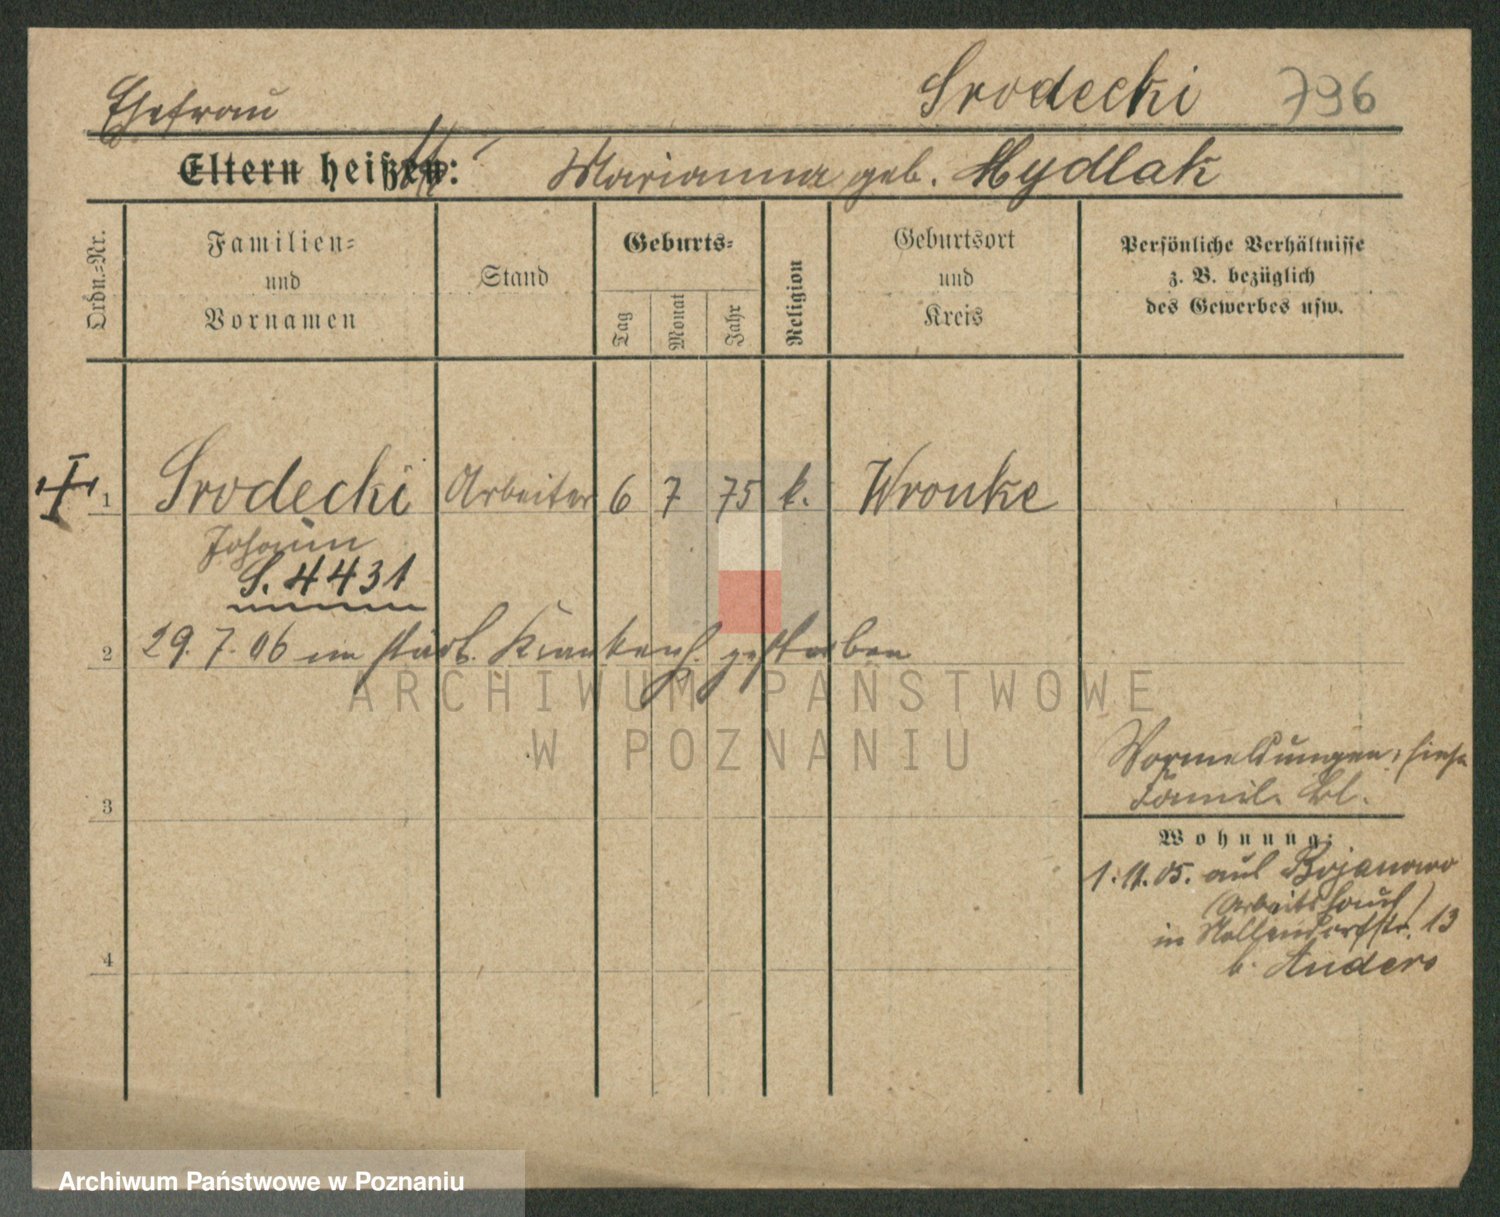 Srodecki 796
Ehefrau
Eltern heißen: Marianna geb. Mydlak
Ordn.=Nr.
Familien=
und
Vornamen
Stand
Geburts=
Tag
Monat
Jahr
Religion
Geburtsort
und
Kreis
Persönliche Verhältnisse
z. B. bezüglich
des Gewerbes usw.
1 Srodecki Arbeiter 6 7 75 k. Wronke
Johann
S. 4431
2 29. 7. 06 im städt. Krankenh. gestorben
ARCHIWUM PAŃSTWOWE
W POZNANIU
Vormeldungen, siehe
Famil. Bl.
3
Wohnung:
1. 11. 05. aus Bojanowo
(Arbeitshaus)
in Nollendorfstr. 13
b. Anders
4
Archiwum Państwowe w Poznaniu